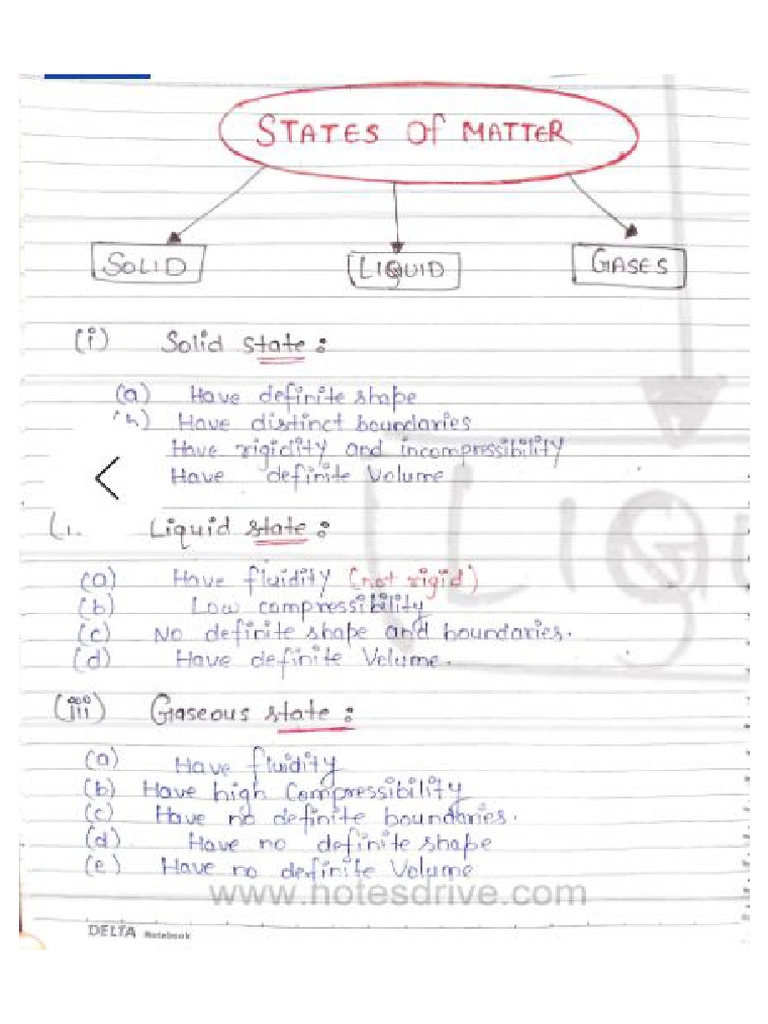 STATES Of MATTER
SOLID
LIQUID
GASES
(i) Solid state :
(a) Have definite shape
(b) Have distinct boundaries
Have rigidity and incompressibility
Have definite Volume
Liquid state :
(a) Have fluidity (not rigid)
(b) Low compressibility
(c) No definite shape and boundaries.
(d) Have definite Volume.
(iii) Gaseous state :
(a) Have fluidity
(b) Have high Compressibility
(c) Have no definite boundaries.
(d) Have no definite shape
(e) Have no definite Volume
www.notesdrive.com
DELTA Notebook